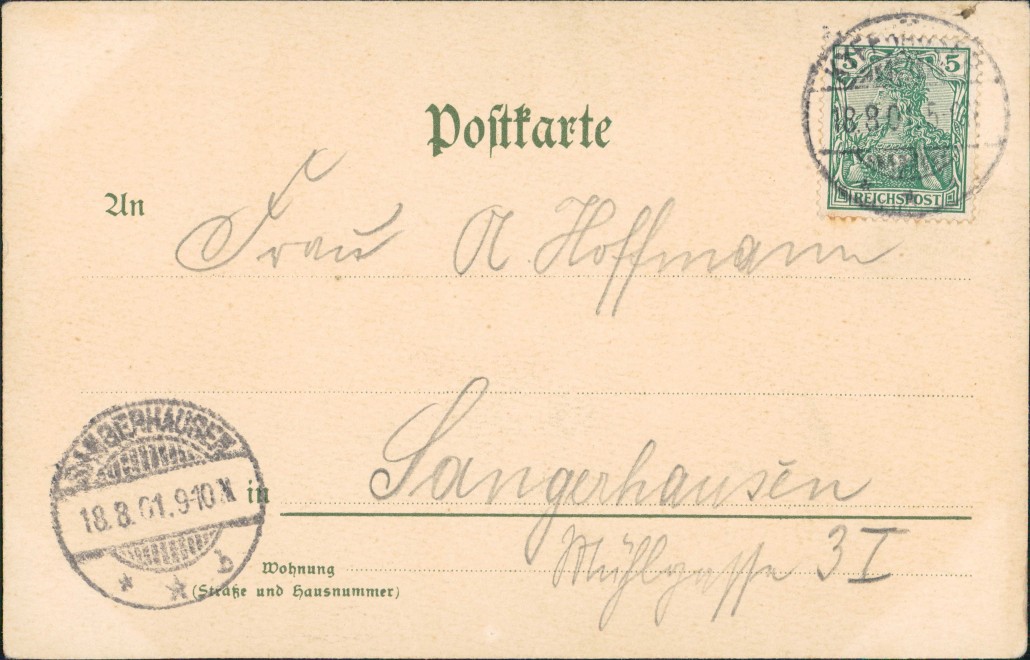 5 5
REICHSPOST
18.8.0
Postkarte
An
Frau A Hoffmann
SANGERHAUSEN
18.8.01.9-10
b
in Sangerhausen
Wohnung
(Straße und Hausnummer)
Mühlgasse 3 I